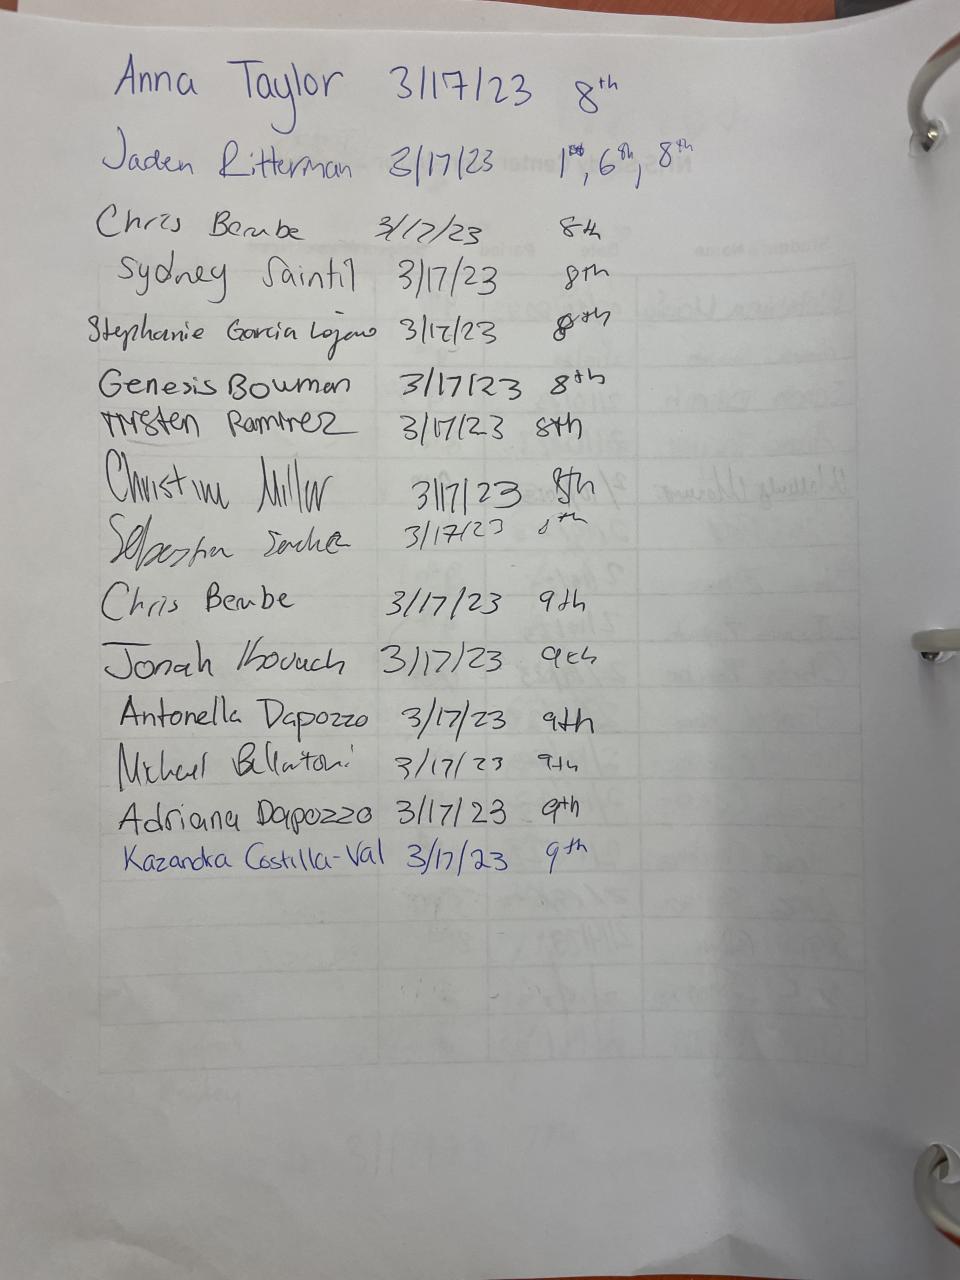 Anna Taylor 3/17/23 8th
Jaden Ritterman 3/17/23 1st, 6th, 8th
Chris Berube 3/17/23 8th
Sydney Saintil 3/17/23 8th
Stephanie Garcia Lojano 3/17/23 8th
Genesis Bowman 3/17/23 8th
Ramirez 3/17/23 8th
Christina Miller 3/17/23 8th
3/17/23 8th
Chris Berube 3/17/23 9th
Jonah 3/17/23 9th
Antonella Dapozzo 3/17/23 9th
Michael 3/17/23 9th
Adriana Dapozzo 3/17/23 9th
Kazandra Costilla-Val 3/17/23 9th